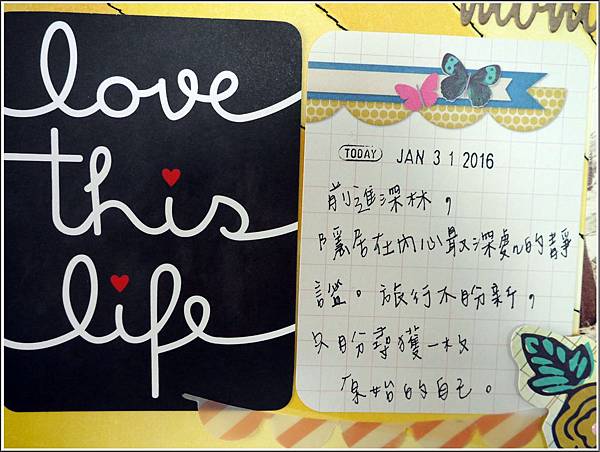 love
this
life
TODAY JAN 31 2016
前進深林，
隱居在內心最深處的靜
謐。旅行不盼新，
只盼尋獲一枚
原始的自己。